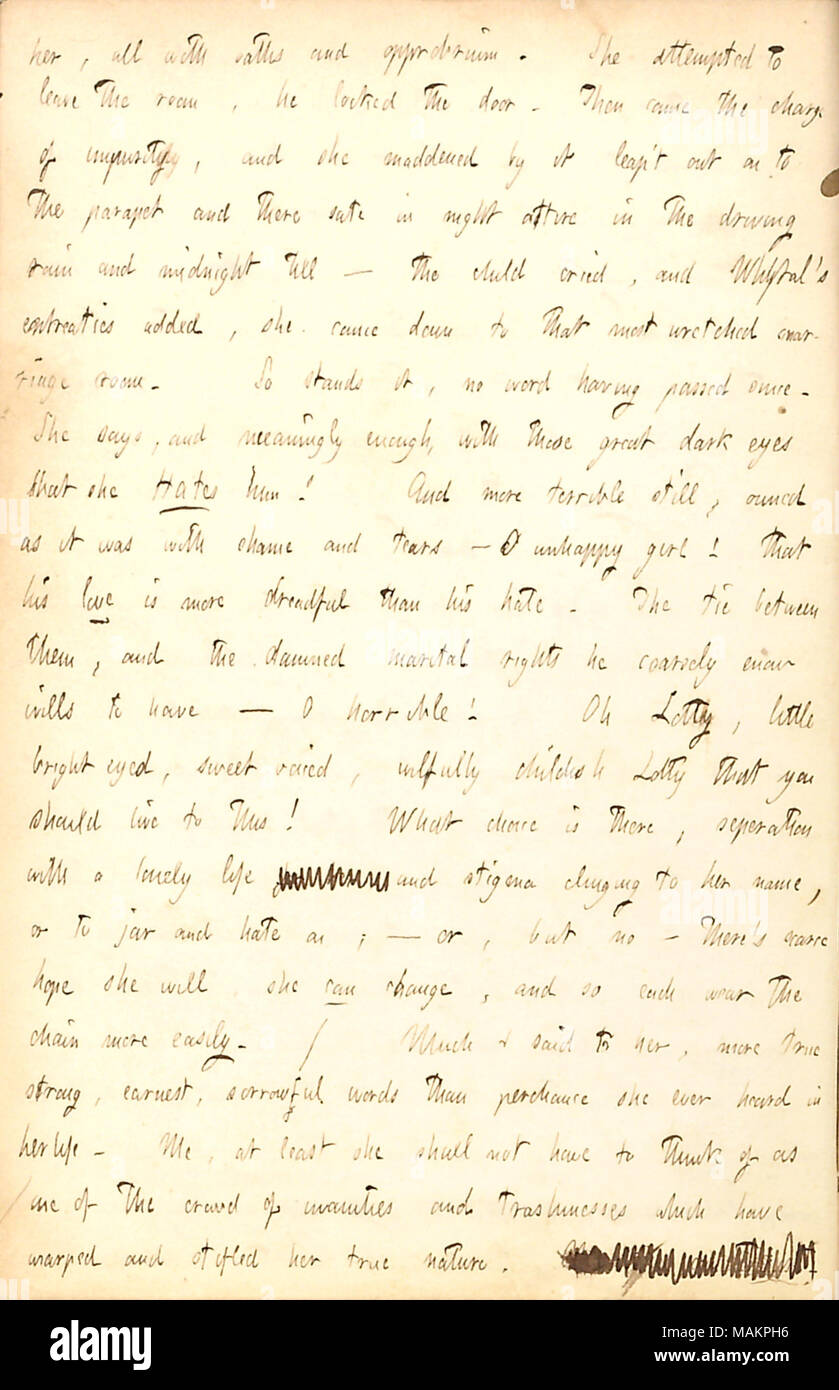 her, all with oaths and opprobrium. She attempted to
leave the room, he locked the door. Then came the charge
of impurity, and she maddened by it leap't out on to
the parapet and there sate in night attire in the driving
rain and midnight till — the child cried, and Whytal's
entreaties added, she came down to that most wretched mar-
riage room. So stands it, no word having passed since.
She says, and meaningly enough, with those great dark eyes
that she Hates him! And more terrible still, owned
as it was with shame and tears — O unhappy girl! that
his love is more dreadful than his hate. The tie between
them, and the damned marital rights he coarsely enow
wills to have — O horrible! Oh Lotty, little
bright eyed, sweet voiced, wilfully childish Lotty that you
should live to this! What choice is there, seperation
with a lonely life and stigma clinging to her name,
or to jar and hate on; — or, but no — There's scarce
hope she will, she can change, and so each wear the
chain more easily. / Much I said to her, more true
strong, earnest, sorrowful words than perchance she ever heard in
her life. Me, at least she shall not have to think of as
one of the crowd of inanities and trashinesses which have
warped and stifled her true nature.
alamy
Image ID: MAKPH6
www.alamy.com